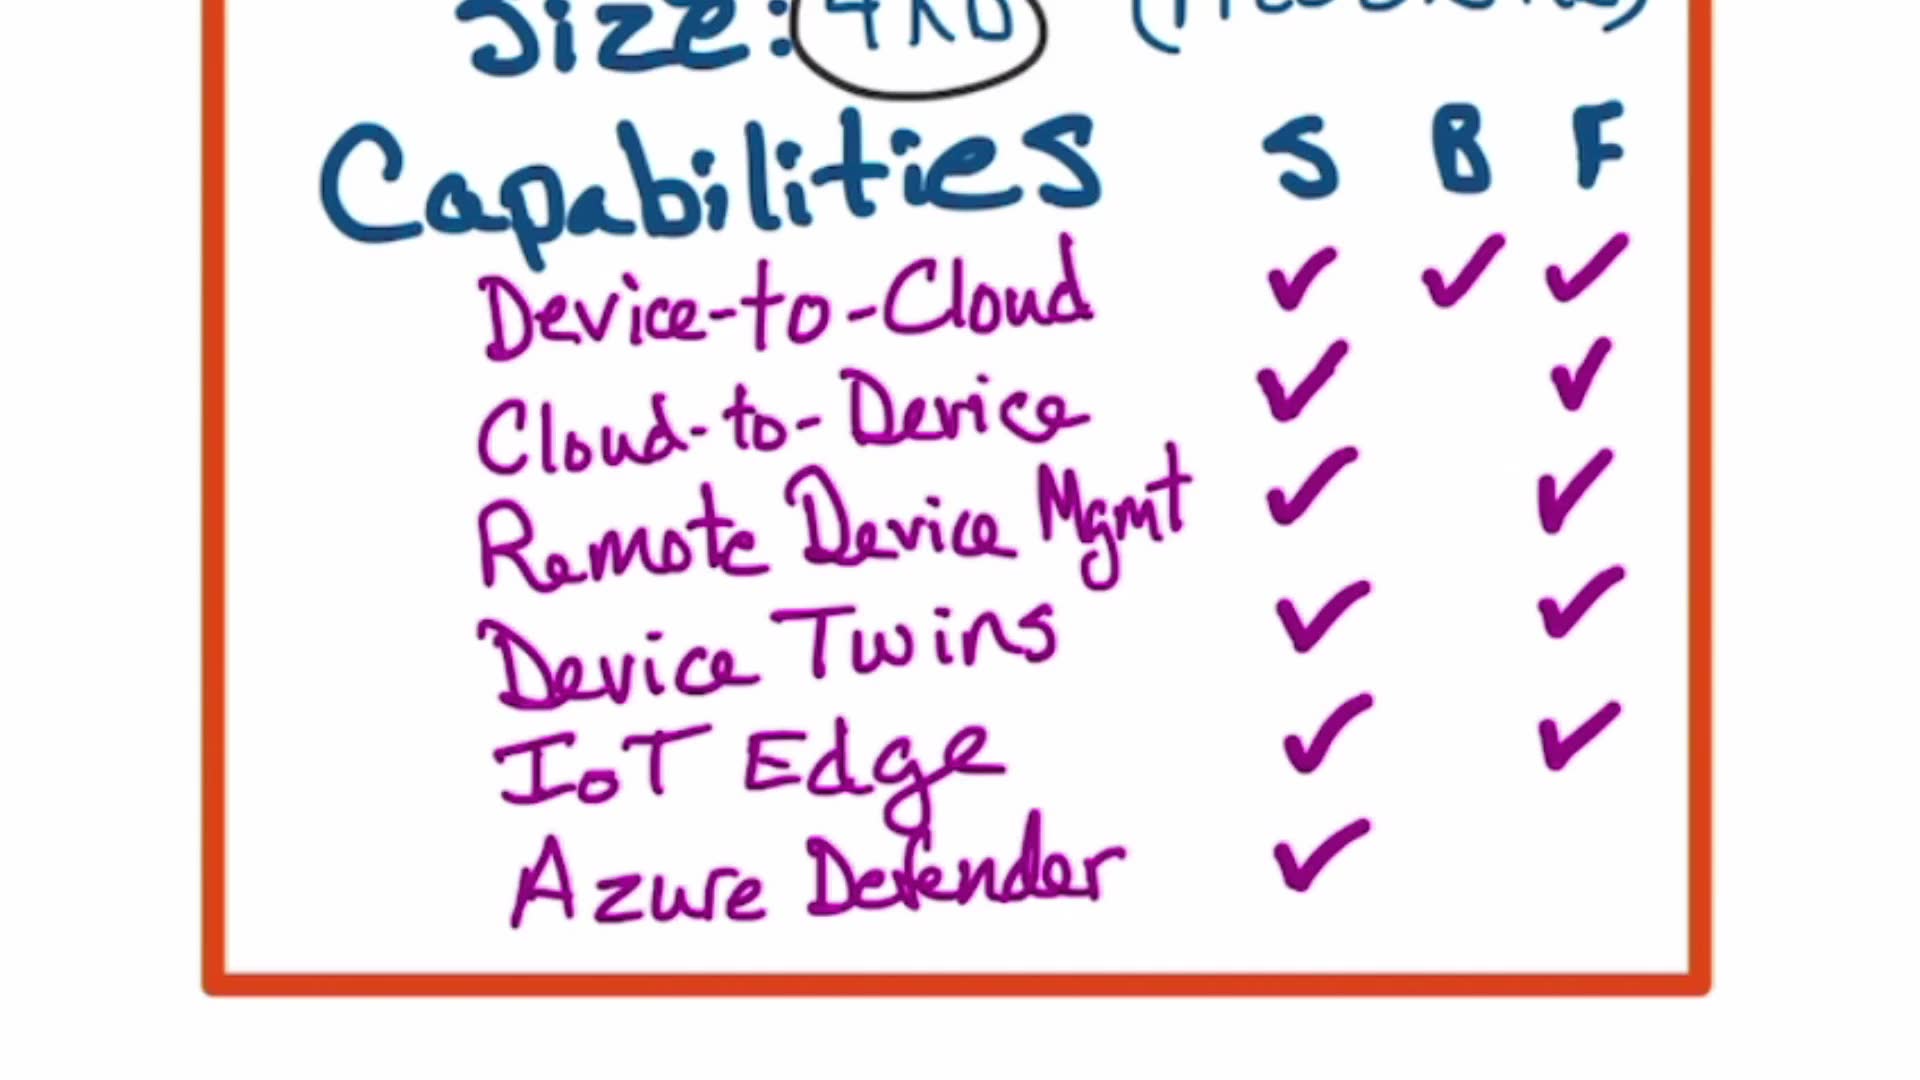 Size: 4KB
Capabilities S B F
Device-to-Cloud ✓ ✓ ✓
Cloud-to-Device ✓ ✓
Remote Device Mgmt ✓ ✓
Device Twins ✓ ✓
IoT Edge ✓ ✓
Azure Defender ✓